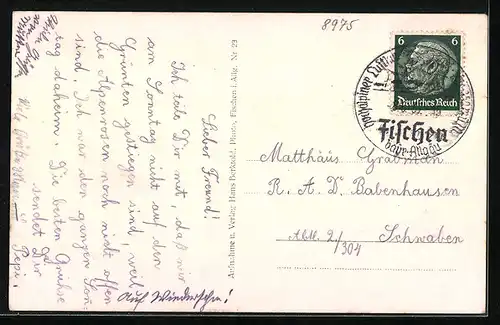 8975
6 6
Deutsches Reich
Fischen
bayr. Allgäu
Lieber Freund!
Ich teile Dir mit, daß wir
am Sonntag nicht auf den
Grünten gestiegen sind, weil
die Alpenrosen noch nicht offen
sind. Ich war den ganzen Sonn-
tag daheim. Die besten Grüße
sendet Dir
Pepi.
Auf Wiedersehn!
Viele Grüße
Aufnahme u. Verlag Hans Photo, Fischen i. Allg. Nr 29
Matthäus Grabman
R. A. D. Babenhausen
Abtlg. 2/304
Schwaben